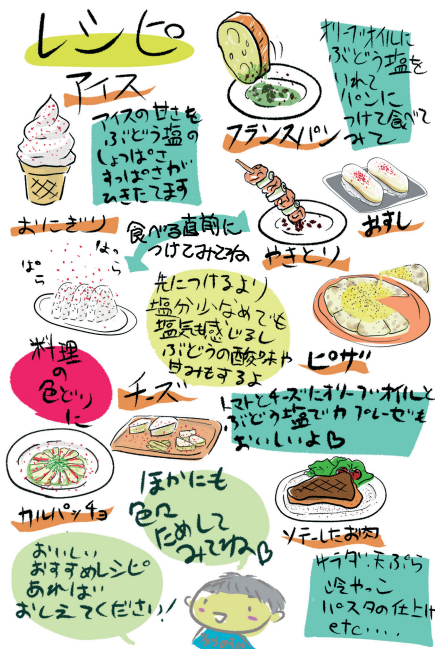 レシピ
アイス
アイスの甘さを
ぶどう塩の
しょっぱさ
すっぱさが
ひきたてます
フランスパン
オリーブオイルに
ぶどう塩を
いれて
パンに
つけて食べて
みて
おにぎり
ぱらぱら
食べる直前に
つけてみてね
やきとり
おすし
先につけるより
塩分少なめでも
塩気も感じるし
ぶどうの酸味や
甘みもするよ
ピザ
料理
の
色どり
に
チーズ
トマトとチーズにオリーブオイルと
ぶどう塩でカプレーゼも
おいしいよ
カルパッチョ
ほかにも
色々
ためして
みてね
ソテーしたお肉
おいしい
おすすめレシピ
あれば
おしえてください!
サラダ 天ぷら
冷やっこ
パスタの仕上げ
etc....